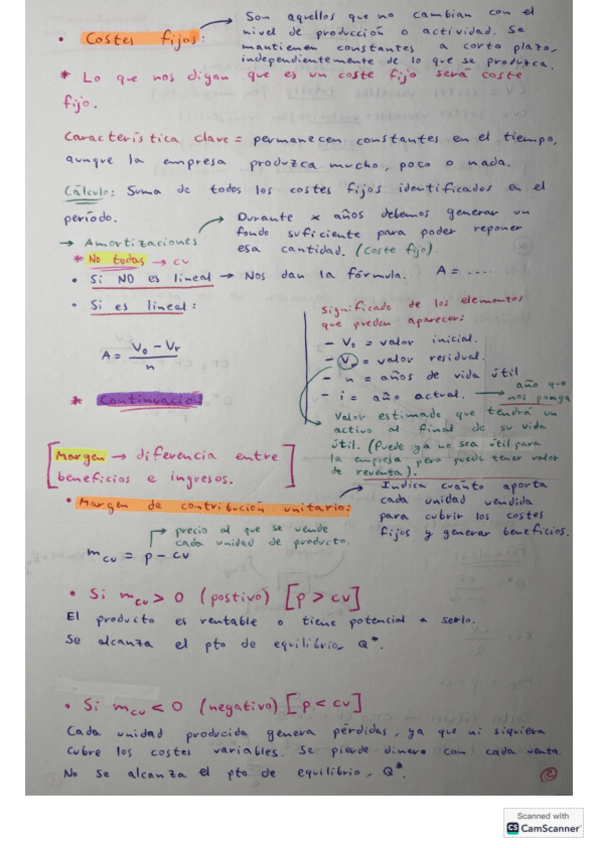 • Costes fijos:
Son aquellos que no cambian con el
nivel de producción o actividad. Se
mantienen constantes a corto plazo,
independientemente de lo que se produzca.
* Lo que nos digan que es un coste fijo será coste
fijo.
Característica clave = permanecen constantes en el tiempo,
aunque la empresa produzca mucho, poco o nada.
Cálculo: Suma de todos los costes fijos identificados a el
período.
→ Amortizaciones
Durante x años debemos generar un
fondo suficiente para poder reponer
esa cantidad. (Coste fijo).
* No todas → CV
• Si NO es lineal → Nos dan la fórmula. A = ....
• Si es lineal:
A = (V₀ - Vr) / n
Significado de los elementos
que pueden aparecer:
- V₀ = valor inicial.
- Vr = valor residual.
- n = años de vida útil
- i = año actual. → año que
nos ponga
Valor estimado que tendrá un
activo al final de su vida
útil. (Puede ya no sea útil para
la empresa pero puede tener valor
de reventa).
* Continuación
[Margen → diferencia entre
beneficios e ingresos.]
• Margen de contribución unitario:
Indica cuánto aporta
cada unidad vendida
para cubrir los costes
fijos y generar beneficios.
precio al que se vende
cada unidad de producto.
mcu = p - cv
• Si mcu > 0 (postivo) [p > cv]
El producto es rentable o tiene potencial a serlo.
Se alcanza el pto de equilibrio, Q*.
• Si mcu < 0 (negativo) [p < cv]
Cada unidad producida genera pérdidas, ya que ni siquiera
cubre los costes variables. Se pierde dinero con cada venta.
No se alcanza el pto de equilibrio, Q*.
2
Scanned with
CS CamScanner